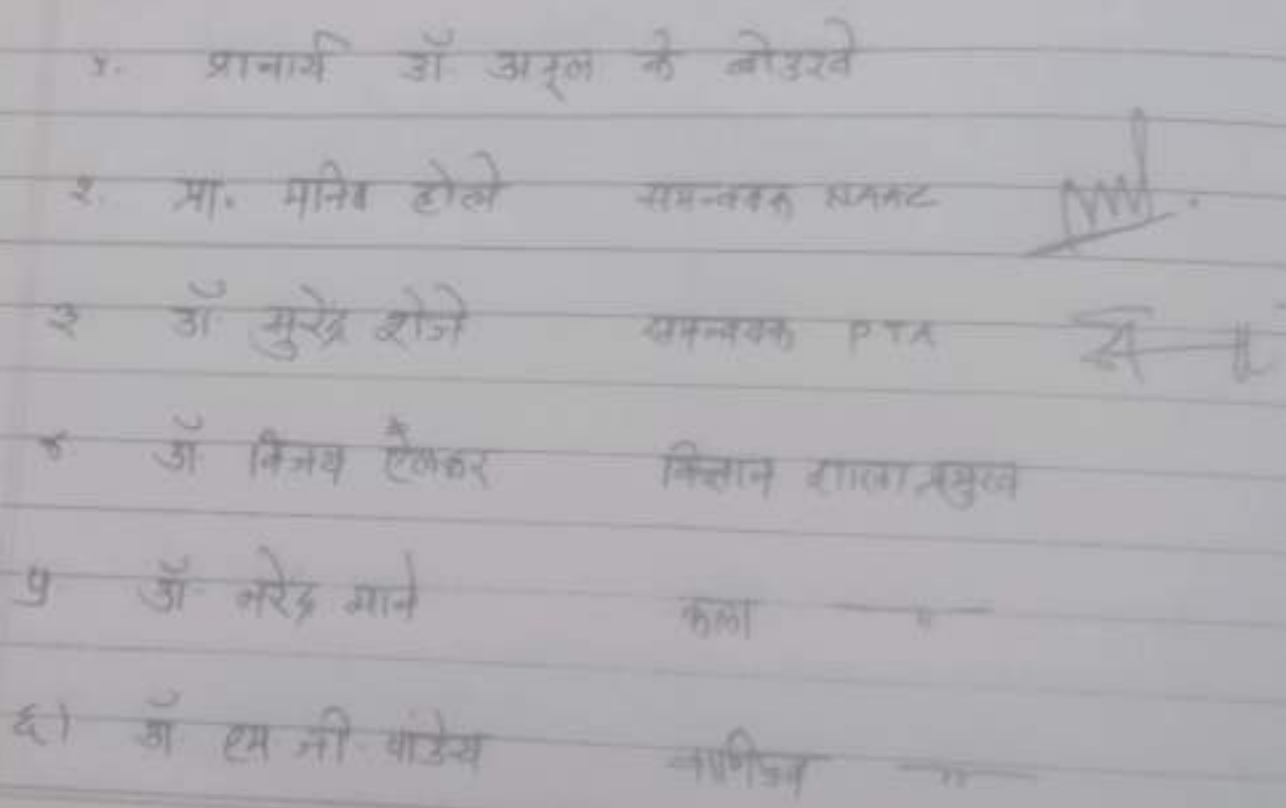 १. प्राचार्य डॉ. अतूल के बोडखे
२. प्रा. मनिष होले समन्वयक NAAC
३ डॉ. सुरेंद्र शेजे समन्वयक PTA
४ डॉ विजय ऐलकर विज्ञान शाखा प्रमुख
५ डॉ. नरेंद्र माने कला — " —
६) डॉ एम जी पांडेय वाणिज्य — " —